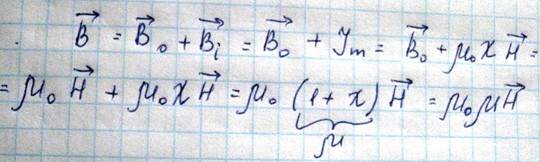 . B⃗ = B⃗₀ + B⃗ᵢ = B⃗₀ + Jₘ = B⃗₀ + μ₀ χ H⃗ =
= μ₀ H⃗ + μ₀ χ H⃗ = μ₀ (1 + χ) H⃗ = μ₀ μ H⃗
μ